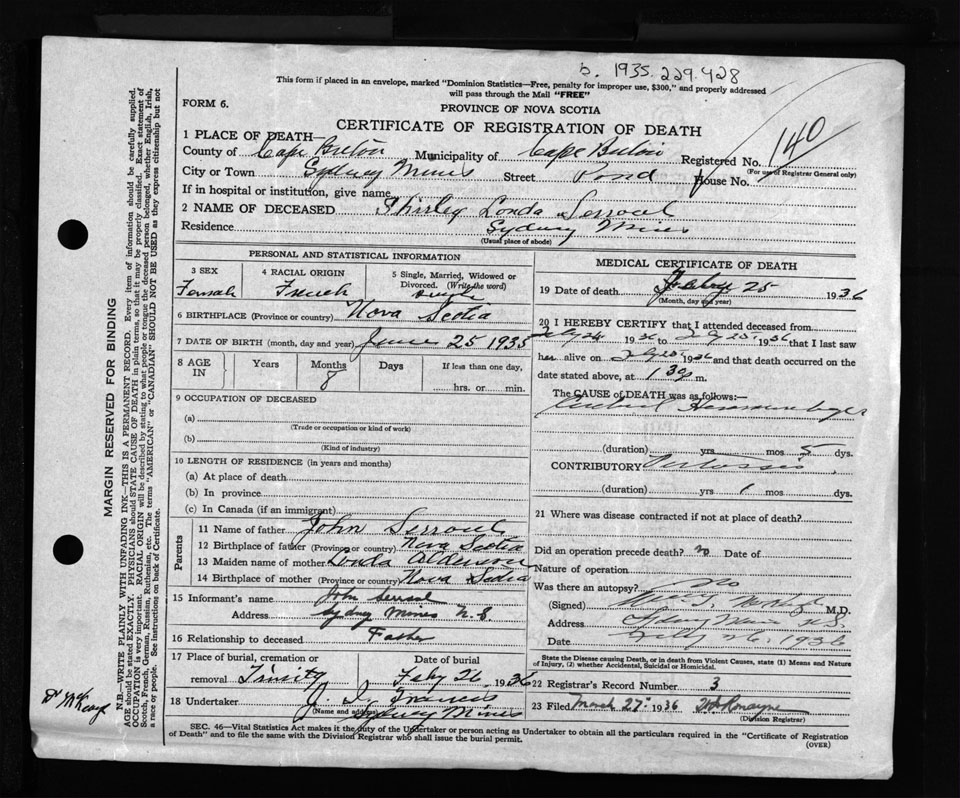 b. 1935. 229.428
This form if placed in an envelope, marked "Dominion Statistics—Free, penalty for improper use, $300," and properly addressed
will pass through the Mail "FREE"
FORM 6.
PROVINCE OF NOVA SCOTIA
CERTIFICATE OF REGISTRATION OF DEATH
1 PLACE OF DEATH—
County of Cape Breton Municipality of Cape Breton Registered No. 140
(For use of Registrar General only)
City or Town Sydney Mines Street Pond House No.
If in hospital or institution, give name
2 NAME OF DECEASED Shirley Londa Serroul
Residence Sydney Mines
(Usual place of abode)
PERSONAL AND STATISTICAL INFORMATION
3 SEX Female
4 RACIAL ORIGIN French
5 Single, Married, Widowed or Divorced. (Write the word) Single
6 BIRTHPLACE (Province or country) Nova Scotia
7 DATE OF BIRTH (month, day and year) June 25 1935
8 AGE IN Years Months 8 Days If less than one day, hrs. or min.
9 OCCUPATION OF DECEASED
(a)
(Trade or occupation or kind of work)
(b)
(Kind of industry)
10 LENGTH OF RESIDENCE (in years and months)
(a) At place of death
(b) In province
(c) In Canada (if an immigrant)
Parents
11 Name of father John Serroul
12 Birthplace of father (Province or country) Nova Scotia
13 Maiden name of mother Londa Alderson
14 Birthplace of mother (Province or country) Nova Scotia
15 Informant's name John Serroul
Address Sydney Mines N.S.
16 Relationship to deceased Father
17 Place of burial, cremation or removal Trinity Date of burial Feby 26 1936
18 Undertaker J
(Name and address) Sydney Mines
MEDICAL CERTIFICATE OF DEATH
19 Date of death Feby 25 1936
(Month, day and year)
20 I HEREBY CERTIFY that I attended deceased from
Feby 24 1936 to Feby 25 1936 that I last saw
her alive on Feby 25 1936 and that death occurred on the
date stated above, at 1 30 m.
The CAUSE of DEATH was as follows:
Cerebral Haemorrhage
(duration) yrs mos 5 dys.
CONTRIBUTORY Pertussis
(duration) yrs 1 mos dys.
21 Where was disease contracted if not at place of death?
Did an operation precede death? no Date of
Nature of operation
Was there an autopsy? no
(Signed) M.D.
Address Sydney Mines N.S.
Date Feby 26 1936
State the Disease causing Death, or in death from Violent Causes, state (1) Means and Nature
of Injury, (2) whether Accidental, Suicidal or Homicidal.
22 Registrar's Record Number 3
23 Filed March 27 1936
(Division Registrar)
SEC. 46—Vital Statistics Act makes it the duty of the Undertaker or person acting as Undertaker to obtain all the particulars required in the "Certificate of Registration
of Death" and to file the same with the Division Registrar who shall issue the burial permit.
(OVER)
MARGIN RESERVED FOR BINDING
N.B.—WRITE PLAINLY WITH UNFADING INK—THIS IS A PERMANENT RECORD. Every item of information should be carefully supplied.
AGE should be stated EXACTLY. PHYSICIANS should STATE CAUSE OF DEATH in plain terms, so that it may be properly classified. Exact statement of
OCCUPATION is very important. RACIAL ORIGIN will be described by stating to what people or tongue the deceased person belonged, whether English, Irish,
Scotch, French, German, Russian, Ruthenian, etc. The terms "AMERICAN" or "CANADIAN" SHOULD NOT BE USED as they express citizenship but not
a race or people. See instructions on back of Certificate.